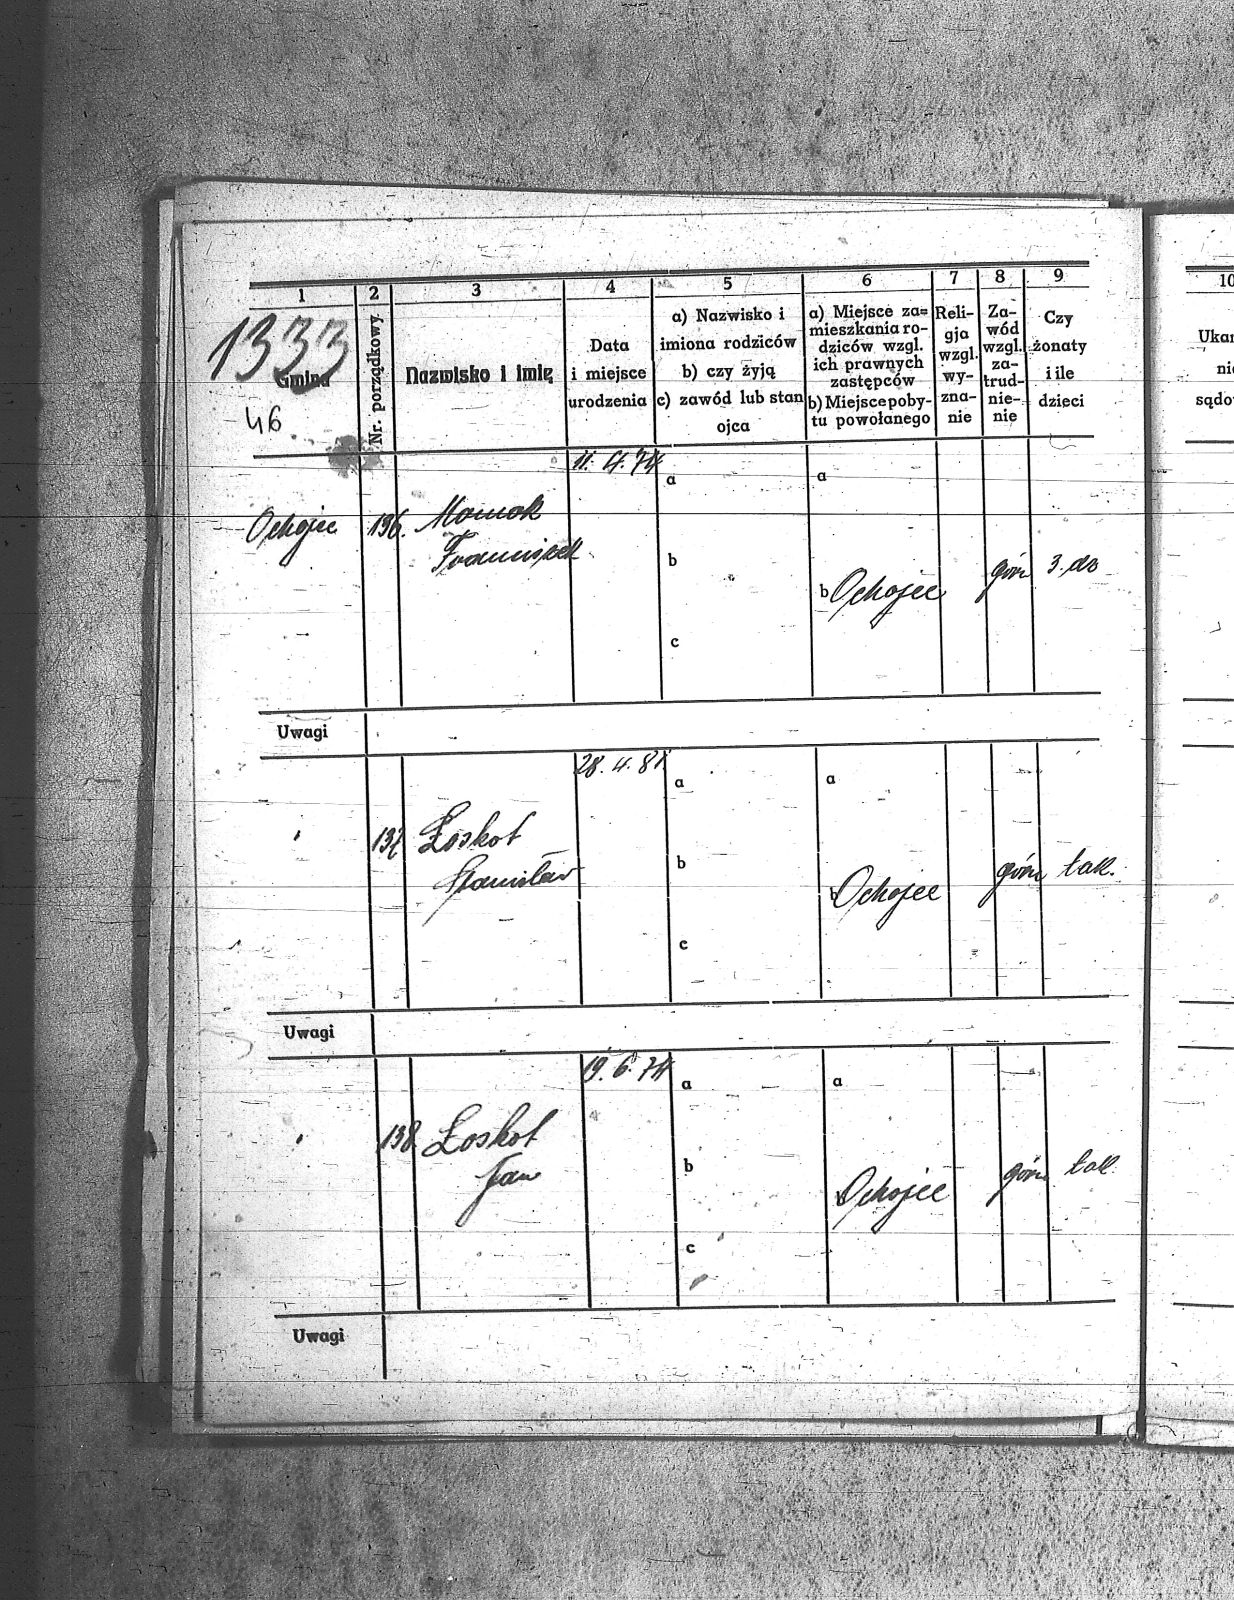 1 2 3 4 5 6 7 8 9 10
1333
Gmina
46
Nr. porządkowy.
Nazwisko i imię
Data
i miejsce
urodzenia
a) Nazwisko i
imiona rodziców
b) czy żyją
c) zawód lub stan
ojca
a) Miejsce za=
mieszkania ro-
dziców wzgl.
ich prawnych
zastępców
b) Miejsce poby-
tu powołanego
Reli-
gja
wzgl.
wy-
zna-
nie
Za-
wód
wzgl.
za-
trud-
nie-
nie
Czy
żonaty
i ile
dzieci
Ukar
nie
sądow
11. 4. 74
a a
Ochojec 136.
Franciszek
b
b Ochojec górn 3. dz
c
Uwagi
28. 4. 81
a a
137 Łoskot
Stanisław
b
b Ochojec górn tak.
c
Uwagi
19. 6. 74
a a
138. Łoskot
Jan
b
b Ochojec górn tak
c
Uwagi